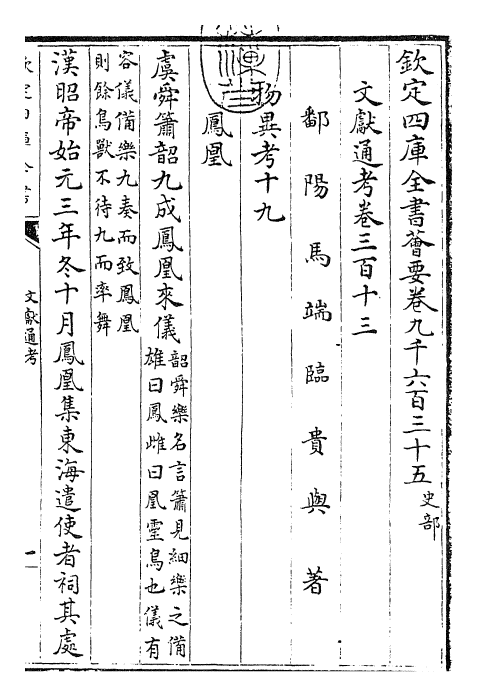 欽定四庫全書薈要卷九千六百三十五 史部
文獻通考卷三百十三
鄱陽馬端臨貴與著
物異考十九
鳳凰
虞舜簫韶九成鳳凰來儀 韶舜樂名言簫見細樂之備
雄曰鳳雌曰凰靈鳥也儀有
容儀備樂九奏而致鳳凰
則餘鳥獸不待九而率舞
漢昭帝始元三年冬十月鳳凰集東海遣使者祠其處
文獻通考
一